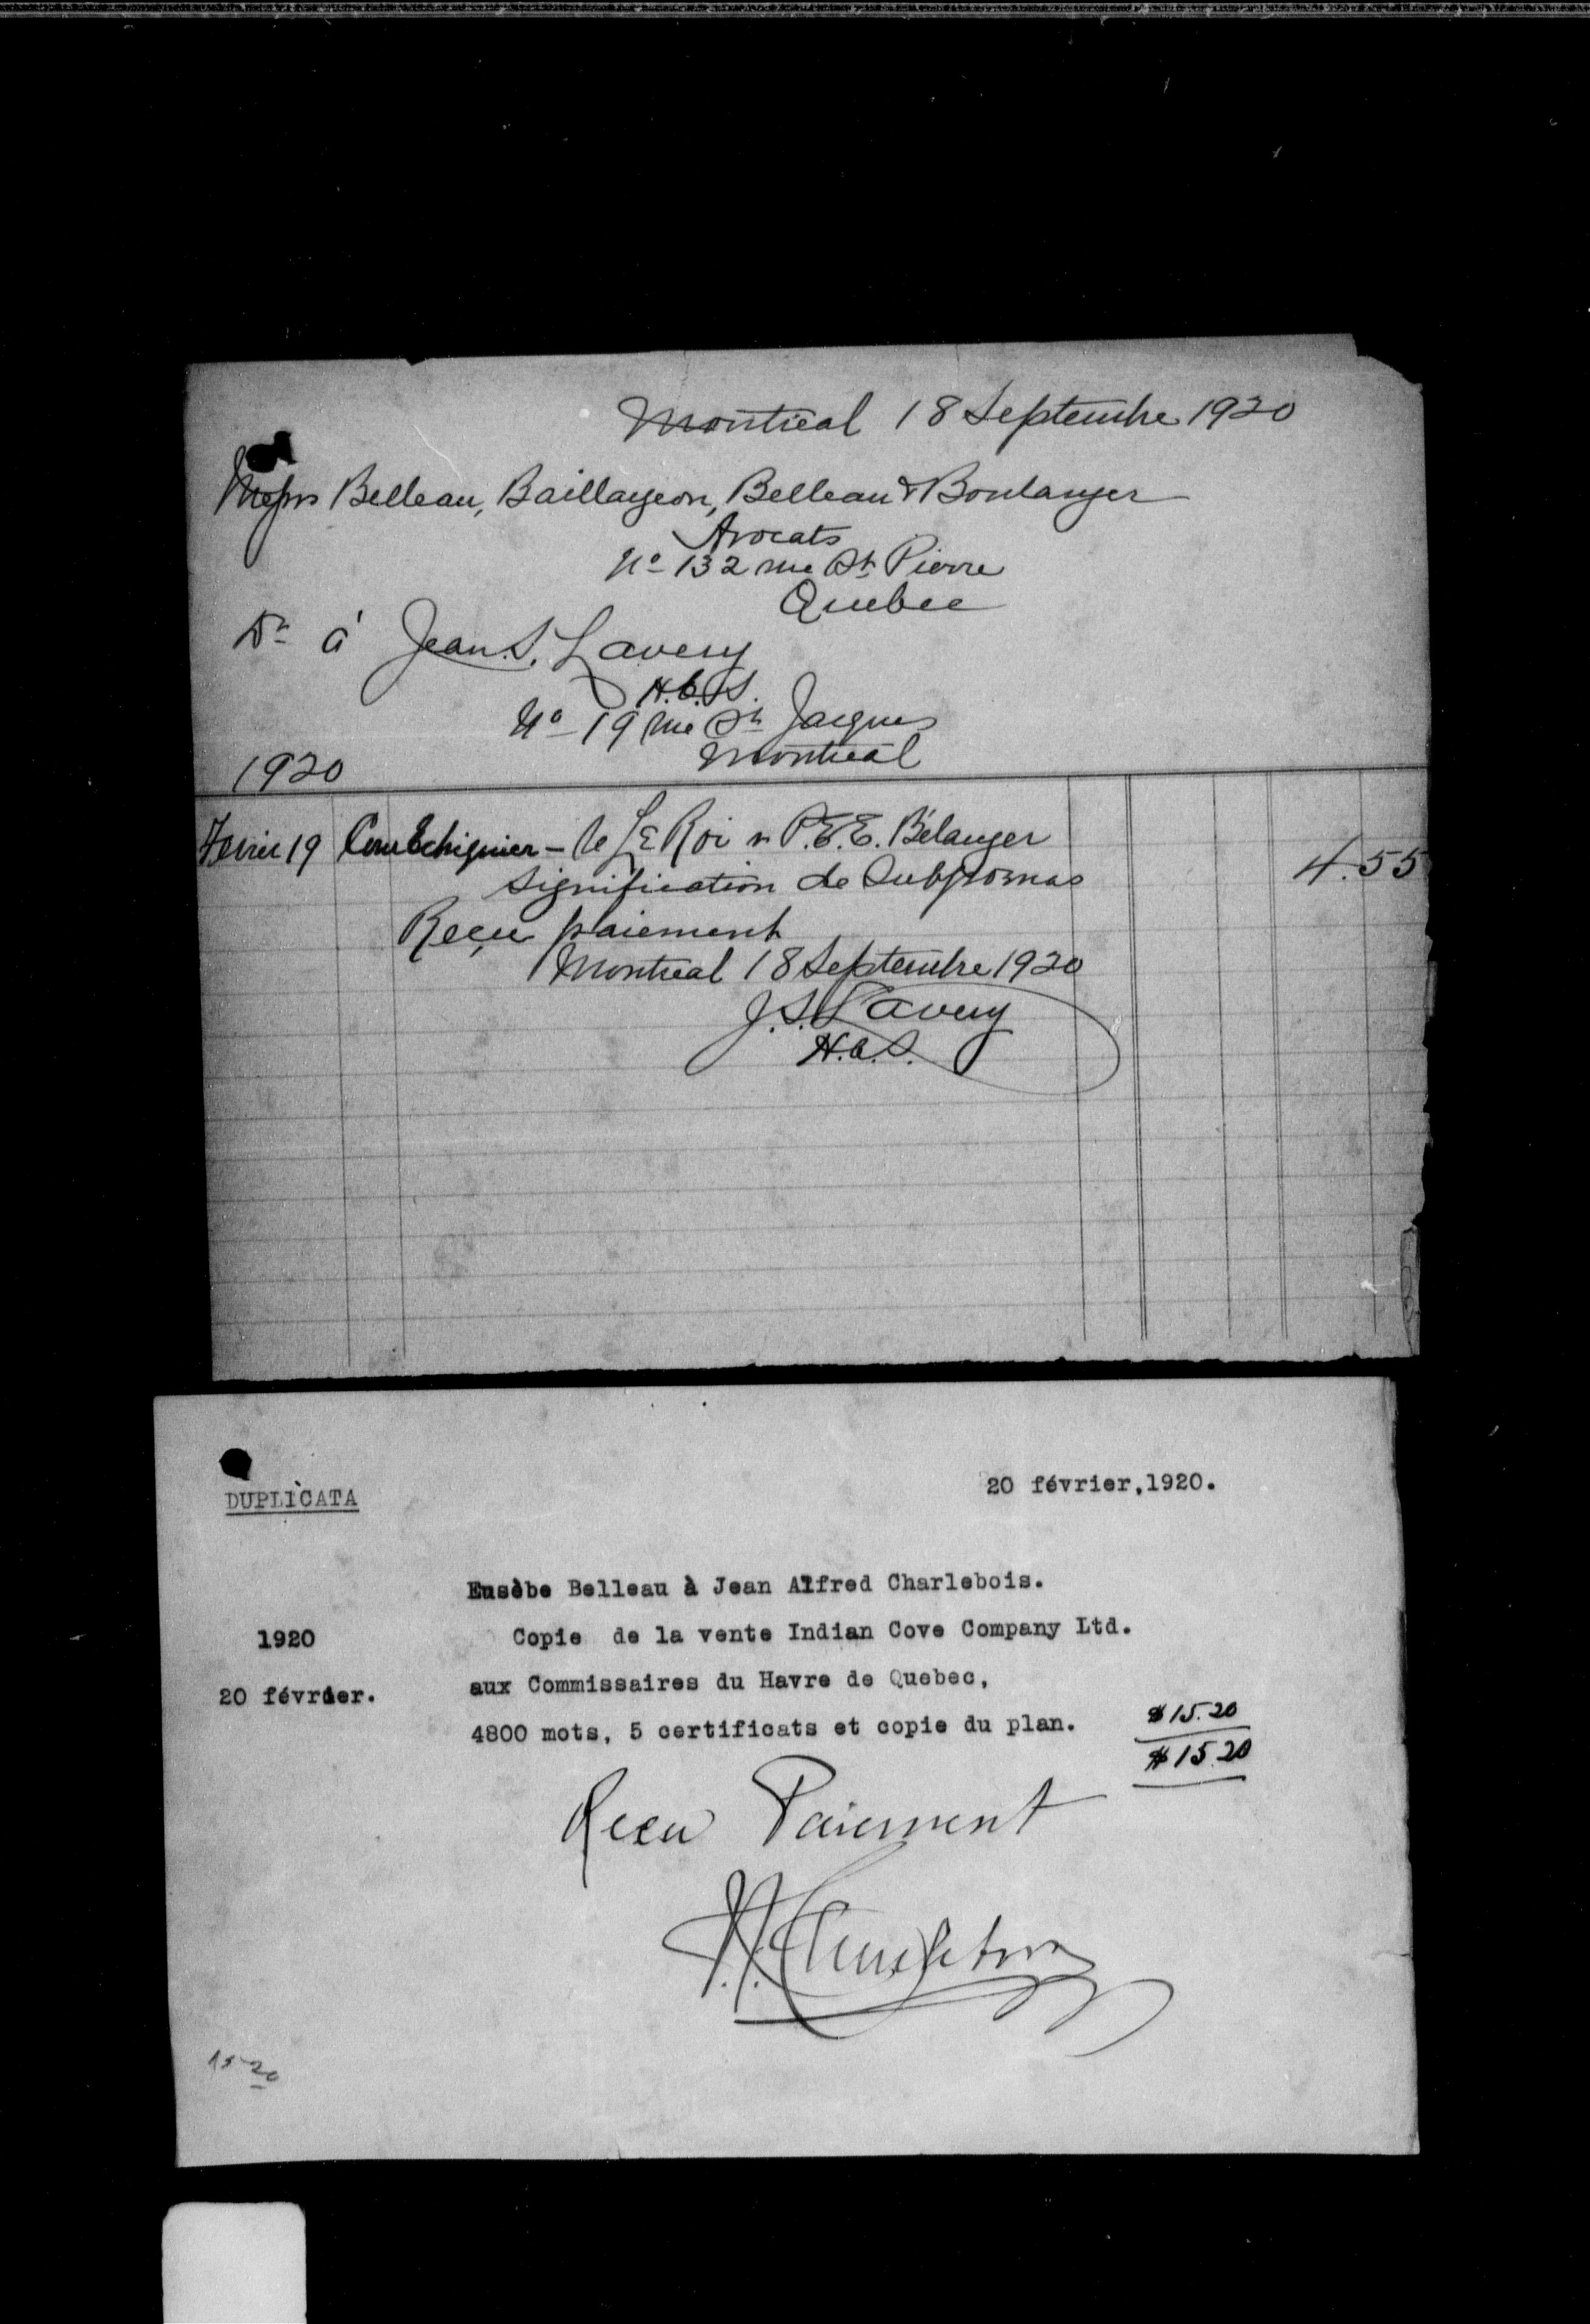 Montreal 18 Septembre 1920
Messrs Belleau, Baillargeon, Belleau & Boulanger
Avocats
No 132 rue St Pierre
Quebec
Dr à Jean. S. Lavery
H.C.S.
No 19 rue St Jacques
Montreal
1920
Fevrier 19 Cour Echiquier - le Roi vs P.E.E. Bélanger
Signification de Subpoenas 4.55
Reçu paiement
Montreal 18 Septembre 1920
J.S. Lavery
H.C.S.
DUPLICATA
20 février,1920.
Eusèbe Belleau à Jean Alfred Charlebois.
1920 Copie de la vente Indian Cove Company Ltd.
20 février. aux Commissaires du Havre de Quebec,
4800 mots, 5 certificats et copie du plan. $15.20
$15.20
Recu Paiement
15 20